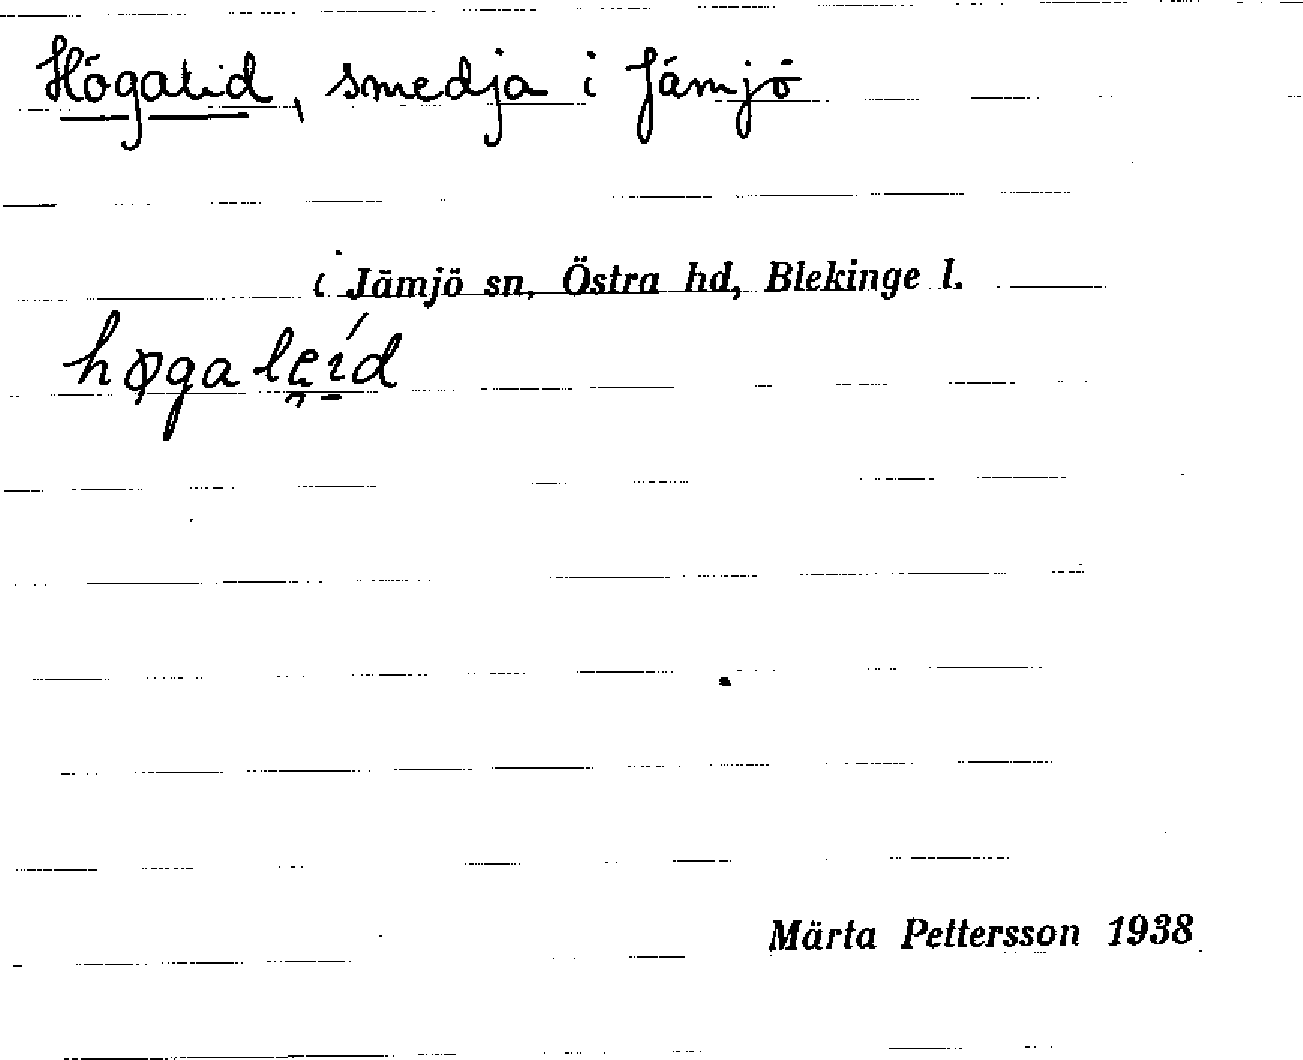 Högalid, smedja i Jämjö
i Jämjö sn, Östra hd, Blekinge l.
høgaleíd
Märta Pettersson 1938